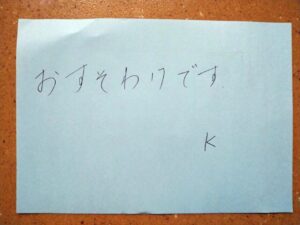 おすそわけです
K